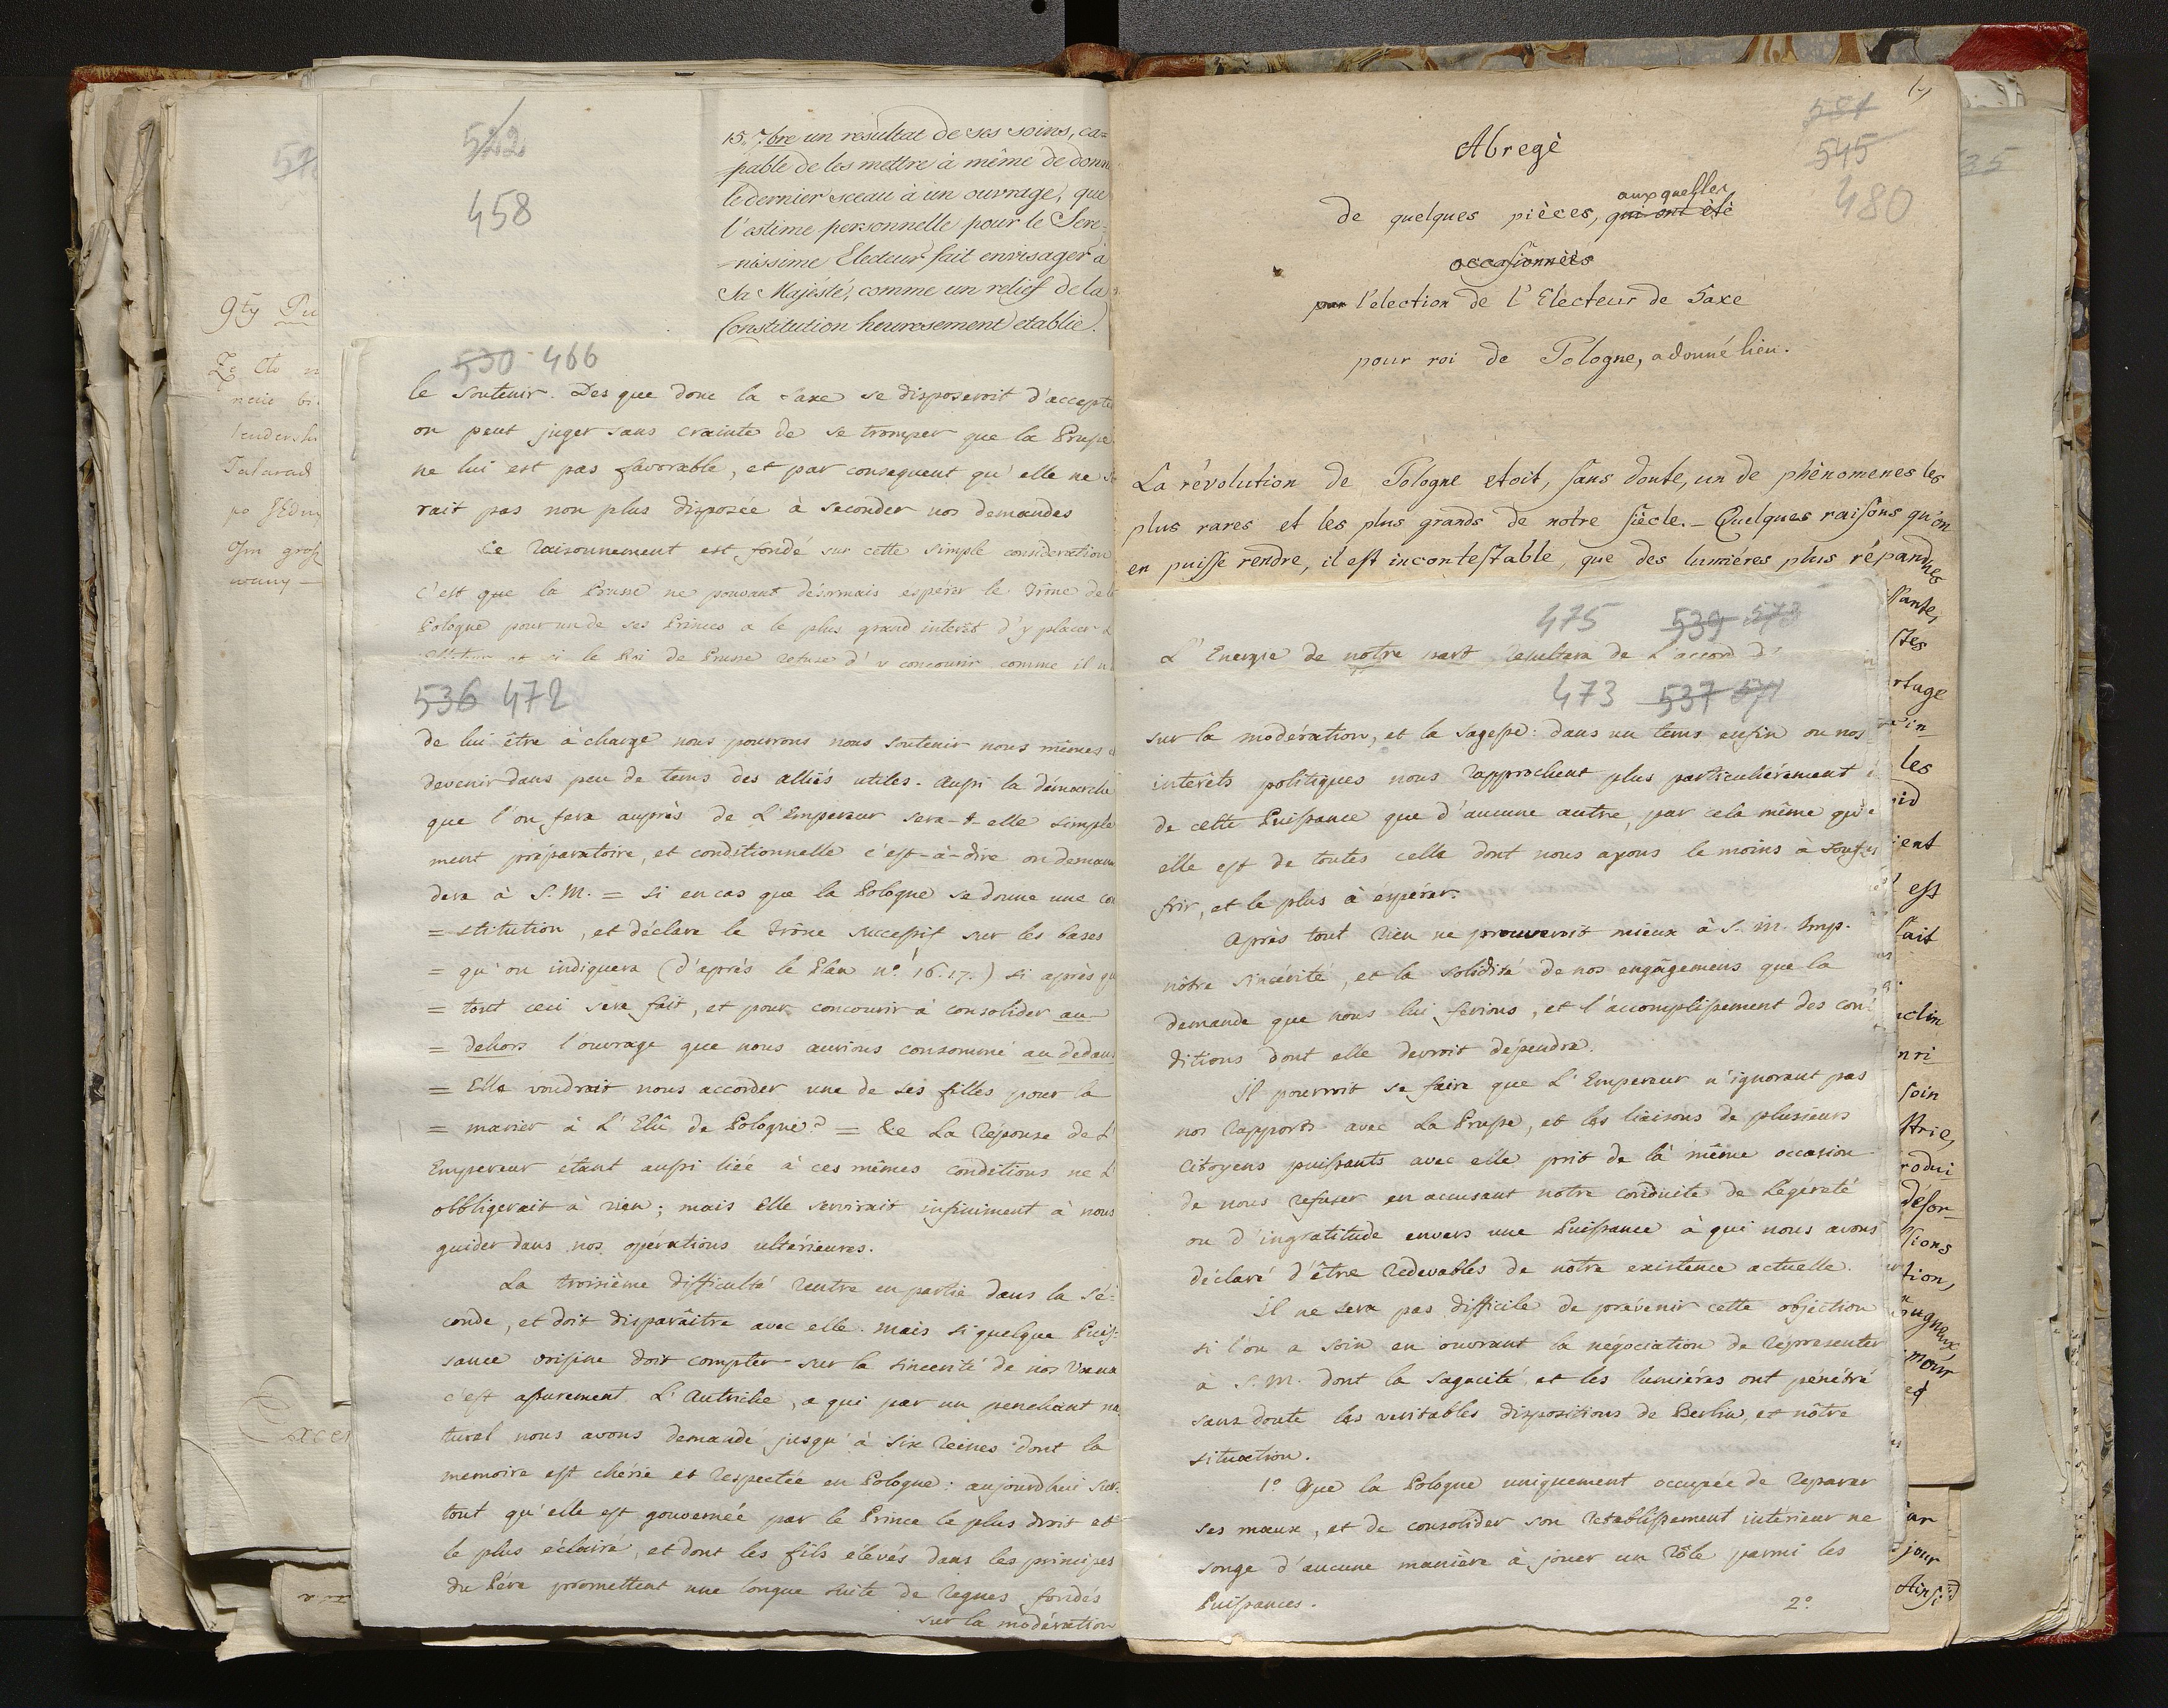 522
458
15. 7bre un résultat de ses soins, ca=
pable de les mettre à même de donn
le dernier sceau à un ouvrage, que
l'estime personnelle pour le Sere=
=nissime Electeur fait envisager à
Sa Majesté, comme un relief de la
Constitution heuresement etablie.
9ty
530 466
le soutenir. Des que donc la Saxe se disposeroit d'accepte
on peut juger sans crainte de se tromper que la Prusse
ne lui est pas favorable, et par consequent qu'elle ne
rait pas non plus disposée à seconder nos demandes
Ce raisonnement est fondé sur cette simple consideration
c'est que la Prusse ne pouvant désormais espérer le Trône de
Pologne pour un de ses Princes a le plus grand interêt d'y placer
et si le Roi de Prusse refuse d'y concourir comme il
536 472
de lui être à charge nous pouvons nous soutenir nous mêmes
devenir dans peu de tems des alliés utiles. Aussi la démarche
que l'on fera auprès de L'Empereur sera-t-elle simple
ment préparatoire, et conditionnelle c'est-à-dire on deman
dera à S. M. = si en cas que la Pologne se donne une con
= stitution, et déclare le Trône successif sur les bases
= qu'on indiquera (d'après le Plan nº. 16. 17.) si après qu
= tout ceci sera fait, et pour concourir à consolider au-
= dehors l'ouvrage que nous aurions consommé au dedans
= Elle voudrait nous accorder une de ses filles pour la
= marier à L'Elû de Pologne? = La Réponse de L'
Empereur étant aussi liée à ces mêmes conditions ne L'
obbligerait à rien; mais elle servirait infiniment à nous
guider dans nos opérations ultérieures.
La troisième difficulté rentre en partie dans la sé=
conde, et doit disparaître avec elle. Mais si quelque Puis=
sance voisine doit compter sur la sincerité de nos
c'est assurement L'Autriche, a qui par un penchant na
turel nous avons demandé jusqu'à six Reines dont la
memoire est chérie et respectée en Pologne: aujourdhui sur=
tout qu'elle est gouvernée par le Prince le plus droit et
le plus éclairé, et dont les fils élevés dans les principes
du Père promettent une longue suite de regnes fondés
sur la modération
581
545
480
35
Abregè
de quelques pièces, qui ont été auxquelles
occasionnées
par l'election de l'Electeur de Saxe
pour roi de Pologne, a donné lieu.
La révolution de Pologne etoit, sans doute, un de phènomenes les
plus rares et les plus grands de notre siècle. - Quelques raisons qu'on
en puisse rendre, il est incontestable, que des lumiéres plus répandues
475 539 573
L'Energie de notre part resultera de L'accord
473 537 571
sur la modération, et la sagesse: dans un tems enfin ou nos
interêts politiques nous rapprochent plus particulièrement
de cette Puissance que d'aucune autre, par cela même qu'
elle est de toutes celle dont nous ayons le moins à souf
frir, et le plus à éspérer.
Après tout rien ne prouveroit mieux à S. M. Imp.
nôtre sincérité, et la solidité de nos engâgemens que la
demande que nous lui ferions, et l'accomplissement des con=
ditions dont elle devroit dépendre.
Il pourroit se faire que L'Empereur n'ignorant pas
nos rapports avec La Prusse, et les liaisons de plusieurs
Citoyens puissants avec elle prit de là même occasion
de nous refuser en accusant notre conduite de Légèreté
ou d'ingratitude envers une Puissance à qui nous avons
déclaré d'être redevables de nôtre existence actuelle.
Il ne sera pas difficile de prévenir cette objection
si l'on a soin en ouvrant la négociation de représenter
à S. M. dont la sagacité et les lumiéres ont pénétré
sans doute les veritables dispositions de Berlin, et nôtre
situation.
1º Que la Pologne uniquement occupée de reparer
ses maux, et de consolider son retablissement intérieur ne
songe d'aucune manière à jouer un rôle parmi les
Puissances.
2º